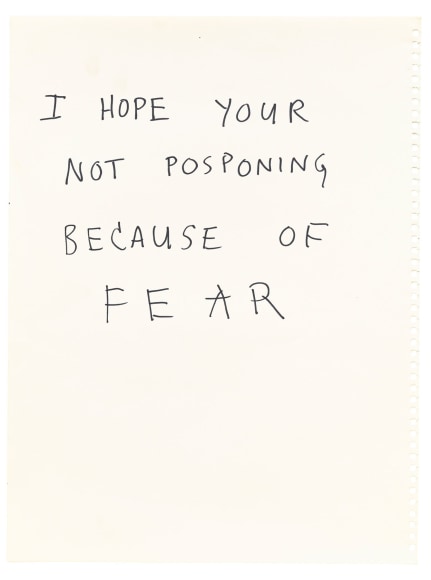 I HOPE YOUR
NOT POSPONING
BECAUSE OF
FEAR